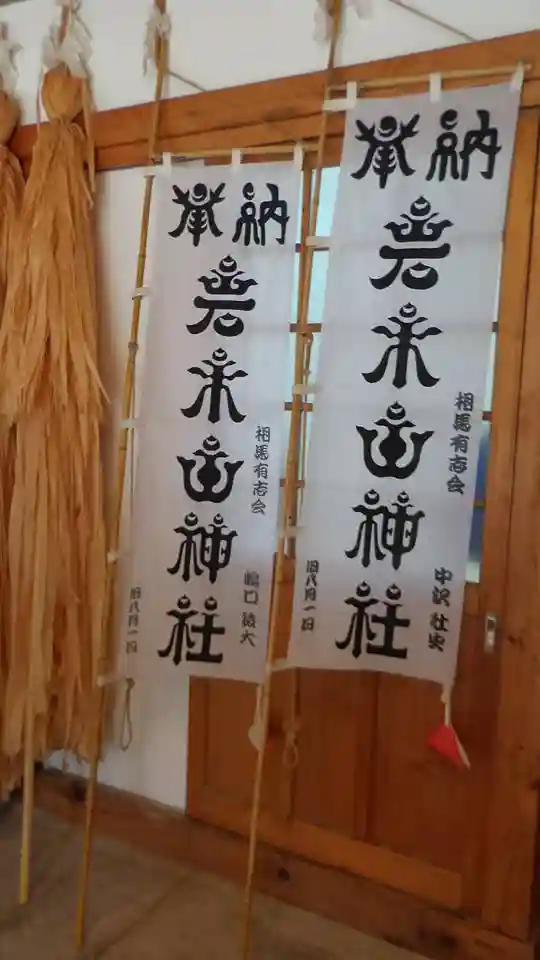 奉納
岩木山神社
相馬有志会
旧八月一日
奉納
岩木山神社
相馬有志会
中沢 壮史
旧八月一日